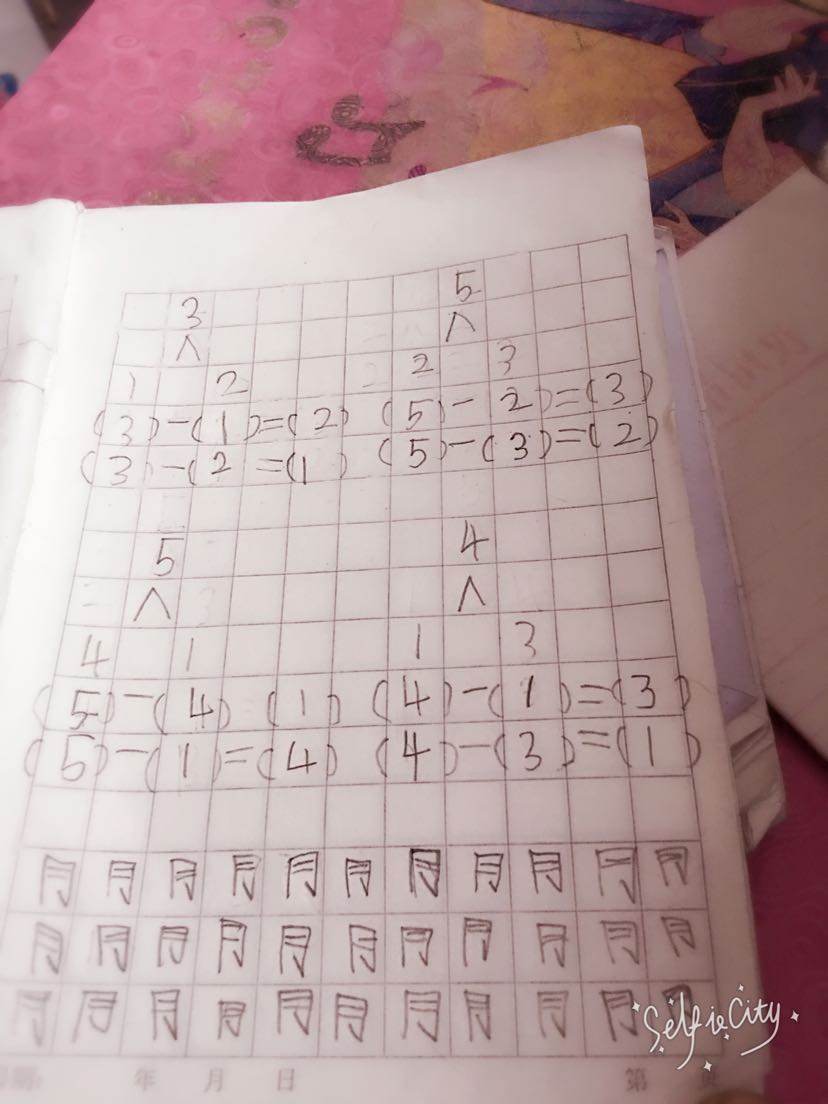 3 5
∧ ∧
1 2 2 3
(3)-(1)=(2) (5)-2)=(3)
(3)-(2=(1) (5)-(3)=(2)
5 4
∧ ∧
4 1 1 3
(5)-(4) (1) (4)-(1)=(3)
(5)-(1)=(4) (4)-(3)=(1)
月月月月月月月月月月月
月月月月月月月月月月月
月月月月月月月月月月月
年 月 日 第 页
SelfieCity